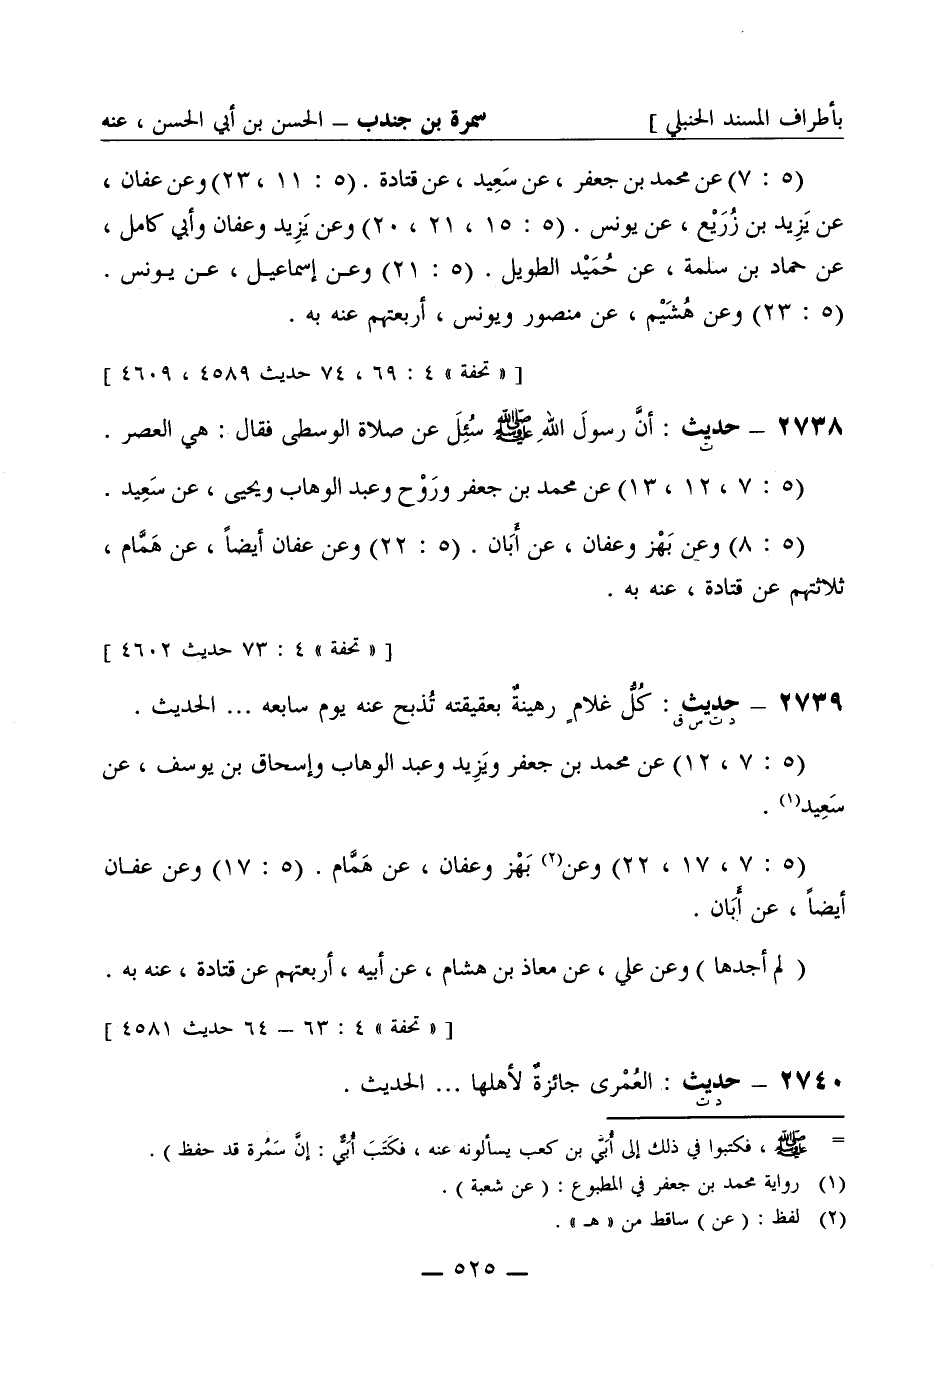 بأطراف المسند الحنبلي ] سمرة بن جندب – الحسن بن أبي الحسن ، عنه
(٥ : ٧) عن محمد بن جعفر ، عن سَعِيد ، عن قتادة . (٥ : ١١ ، ٢٣) وعن عفان ،
عن يَزِيد بن زُرَيْع ، عن يونس . (٥ : ١٥ ، ٢١ ، ٢٠) وعن يَزِيد وعفان وأبي كامل ،
عن حماد بن سلمة ، عن حُمَيْد الطويل . (٥ : ٢١) وعن إسماعيل ، عن يونس .
(٥ : ٢٣) وعن هُشَيْم ، عن منصور ويونس ، أربعتهم عنه به .
[ « تحفة » ٤ : ٦٩ ، ٧٤ حديث ٤٥٨٩ ، ٤٦٠٩ ]
٢٧٣٨ – حديث : أنَّ رسولَ اللهِ ﷺ سُئِلَ عن صلاة الوسطى فقال : هي العصر .
ت
(٥ : ٧ ، ١٢ ، ١٣) عن محمد بن جعفر ورَوْح وعبد الوهاب ويحيى ، عن سَعِيد .
(٥ : ٨) وعن بَهْز وعفان ، عن أَبَان . (٥ : ٢٢) وعن عفان أيضاً ، عن هَمَّام ،
ثلاثتهم عن قتادة ، عنه به .
[ « تحفة » ٤ : ٧٣ حديث ٤٦٠٢ ]
٢٧٣٩ – حديث : كُلُّ غلامٍ رهينةٌ بعقيقته تُذبح عنه يوم سابعه ... الحديث .
د ت س ق
(٥ : ٧ ، ١٢) عن محمد بن جعفر ويَزِيد وعبد الوهاب وإسحاق بن يوسف ، عن
سَعِيد(١) .
(٥ : ٧ ، ١٧ ، ٢٢) وعن(٢) بَهْز وعفان ، عن هَمَّام . (٥ : ١٧) وعن عفان
أيضاً ، عن أَبَان .
( لم أجدها ) وعن علي ، عن معاذ بن هشام ، عن أبيه ، أربعتهم عن قتادة ، عنه به .
[ « تحفة » ٤ : ٦٣ – ٦٤ حديث ٤٥٨١ ]
٢٧٤٠ – حديث : العُمْرى جائزةٌ لأهلها ... الحديث .
د ت
= ﷺ ، فكتبوا في ذلك إلى أُبَيَّ بن كعب يسألونه عنه ، فكَتَبَ أُبَيٌّ : إنَّ سَمُرة قد حفظ ) .
(١) رواية محمد بن جعفر في المطبوع : ( عن شعبة ) .
(٢) لفظ : ( عن ) ساقط من « هـ » .
– ٥٢٥ –